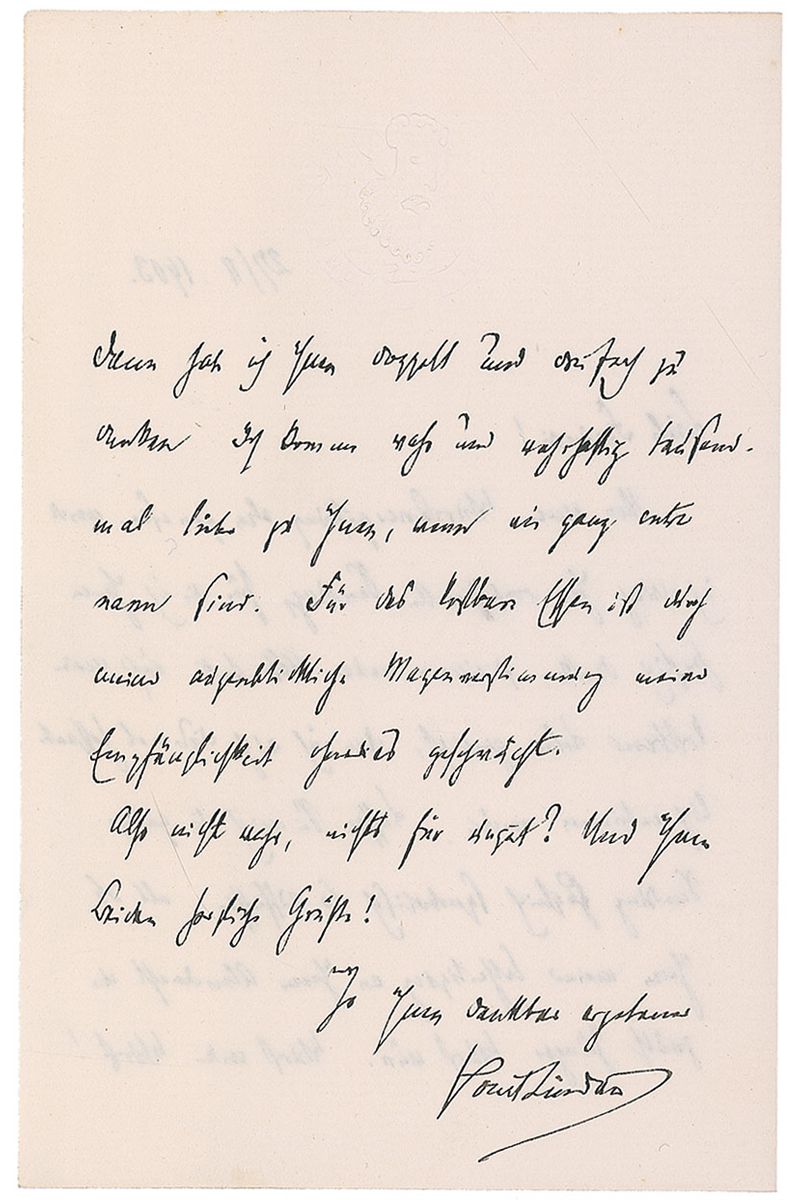 Dann hab ich Ihnen doppelt und dreifach zu
danken. Ich komme wahr und wahrhaftig tausend-
mal lieber zu Ihnen, wenn wir ganz entre
nous sind. Für das kostbare Essen ist durch
meine augenblickliche Magenverstimmung meine
Empfänglichkeit ohnedies geschwächt.
Also nicht wahr, nichts für ungut? Und Ihnen
Beiden herzliche Grüße!
Ihr Ihnen dankbar ergebener
Paul Lindau